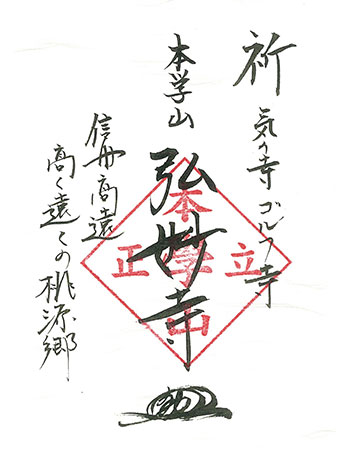 祈
気の寺 ゴルフ寺
本学山
弘妙寺
信州高遠
高く遠くの桃源郷
本学山
正立